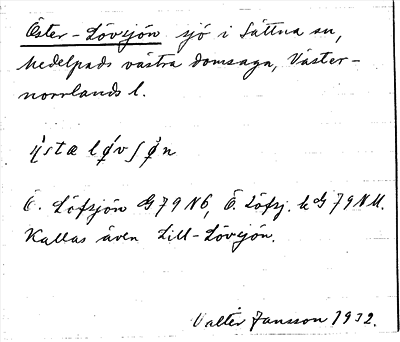 Öster-Lövsjön sjö i Sättna sn,
Medelpads västra domsaga, Väster-
norrlands l.
Ö. Löfsjön G79N6, Ö. Löfsj. k G79NU.
Kallas även Lill-Lövsjön.
Valter Jansson 1932.